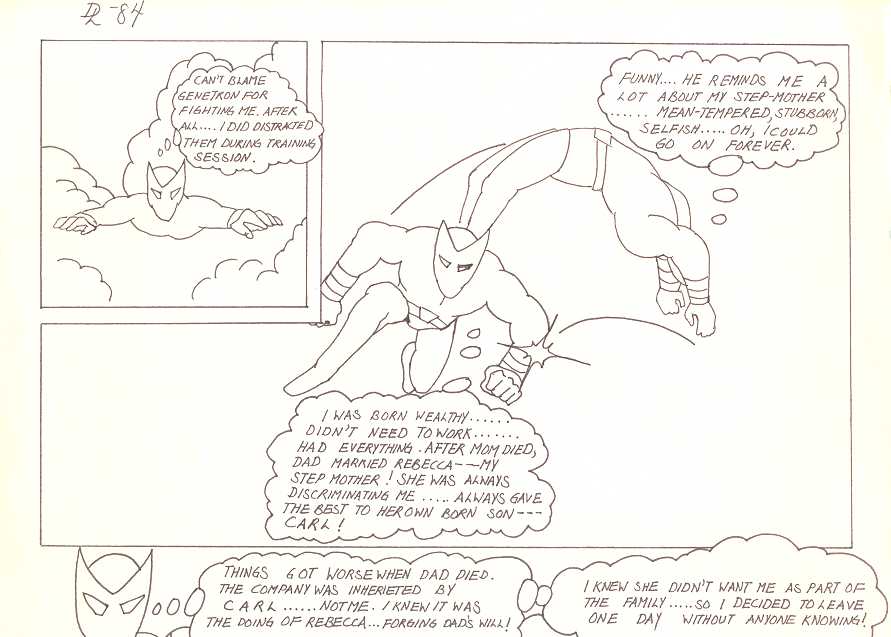 DL -84
CAN'T BLAME
GENETRON FOR
FIGHTING ME. AFTER
ALL.... I DID DISTRACTED
THEM DURING TRAINING
SESSION.
FUNNY.... HE REMINDS ME A
LOT ABOUT MY STEP-MOTHER
...... MEAN-TEMPERED, STUBBORN,
SELFISH..... OH, I COULD
GO ON FOREVER.
I WAS BORN WEALTHY......
DIDN'T NEED TO WORK.......
HAD EVERYTHING. AFTER MOM DIED,
DAD MARRIED REBECCA---MY
STEP MOTHER! SHE WAS ALWAYS
DISCRIMINATING ME ..... ALWAYS GAVE
THE BEST TO HER OWN BORN SON---
CARL!
THINGS GOT WORSE WHEN DAD DIED.
THE COMPANY WAS INHERIETED BY
CARL...... NOT ME. I KNEW IT WAS
THE DOING OF REBECCA... FORGING DAD'S WILL!
I KNEW SHE DIDN'T WANT ME AS PART OF
THE FAMILY.....SO I DECIDED TO LEAVE
ONE DAY WITHOUT ANYONE KNOWING!